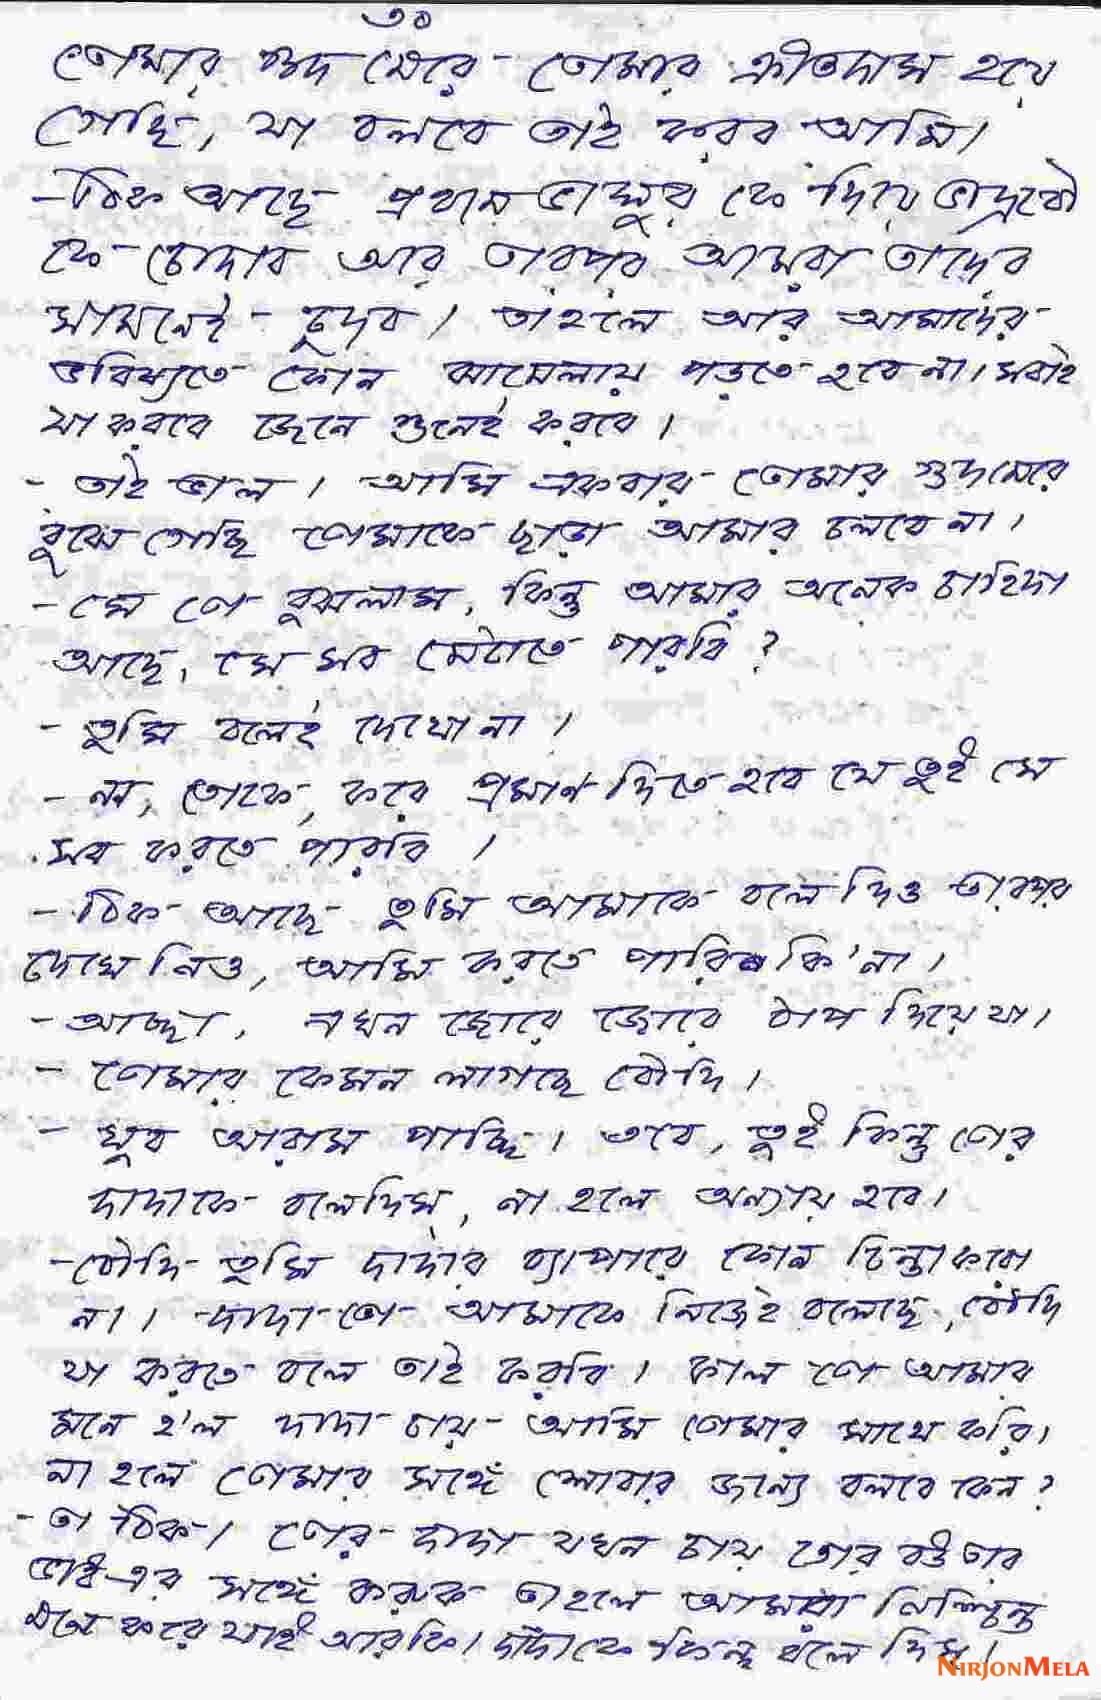 ৩০
তোমার গুদ মেরে তোমার ক্রীতদাস হয়ে
গেছি, যা বলবে তাই করব আমি।
- ঠিক আছে প্রথমে ভাসুর কে দিয়ে ভাদ্রবৌ
কে চোদাব আর তারপর আমরা তাদের
সামনেই চুদব। তাহলে আর আমাদের
ভবিষ্যতে কোন ঝামেলায় পড়তে হবে না। সবাই
যা করবে জেনে শুনেই করবে।
- তাই ভাল। আমি একবার তোমার গুদ মেরে
বুঝে গেছি তোমাকে ছাড়া আমার চলবে না।
- সে তো বুঝলাম, কিন্তু আমার অনেক চাহিদা
আছে, সে সব মেটাতে পারবি?
- তুমি বলেই দেখো না।
- না, তোকে, করে প্রমাণ দিতে হবে যে তুই সে
সব করতে পারবি।
- ঠিক আছে তুমি আমাকে বলে দিও তারপর
দেখে নিও, আমি করতে পারি কি'না।
- আচ্ছা, এখন জোরে জোরে ঠাপ দিয়ে যা।
- তোমার কেমন লাগছে বৌদি।
- খুব আরাম পাচ্ছি। তবে, তুই কিন্তু তোর
দাদাকে বলে দিস, না হলে অন্যায় হবে।
- বৌদি তুমি দাদার ব্যাপারে কোন চিন্তা করো
না। দাদা তো আমাকে নিজেই বলেছে, বৌদি
যা করতে বলে তাই করবি। কাল তো আমার
মনে হ'ল দাদা চায় আমি তোমার সাথে করি।
না হলে তোমার সঙ্গে শোবার জন্যে বলবে কেন?
- তা ঠিক। তোর দাদা যখন চায় তোর বউ তার
ভাই এর সঙ্গে করুক তাহলে আমরা নিশ্চিন্ত
মনে করে যাই আর কি। দাদাকে কিন্তু বলে দিস।
NIRJONMELA